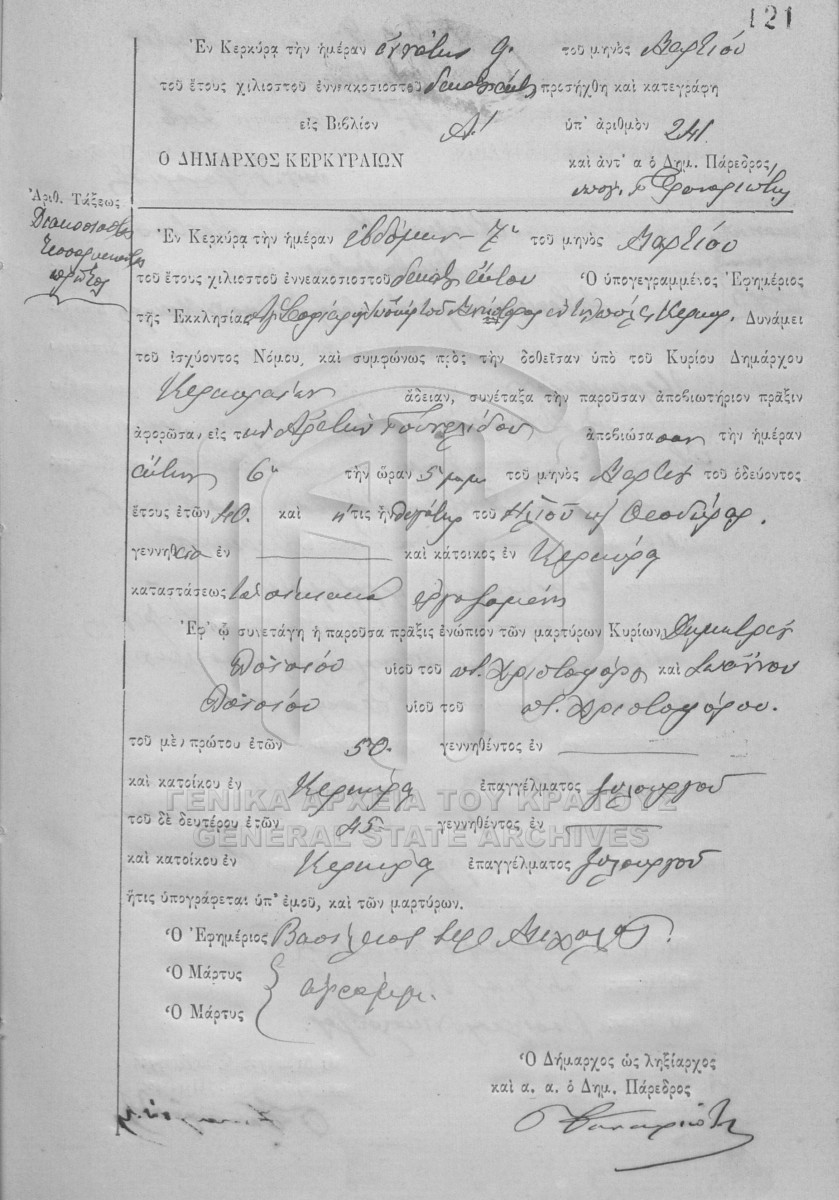 121
Ἐν Κερκύρᾳ τὴν ἡμέραν ἐννάτην 9. τοῦ μηνὸς Μαρτίου
τοῦ ἔτους χιλιοστοῦ ἐννεακοσιοστοῦ προσήχθη καὶ κατεγράφη
εἰς Βιβλίον Α' ὑπ' ἀριθμὸν 241
Ὁ ΔΗΜΑΡΧΟΣ ΚΕΡΚΥΡΑΙΩΝ καὶ ἀντ' α ὁ Δημ. Πάρεδρος
Ἀριθ. Τάξεως
Διακοσιοστὴ
τεσσαρακοστὴ
πρώτη
Ἐν Κερκύρᾳ τὴν ἡμέραν ἑβδόμην 7 τοῦ μηνὸς Μαρτίου
τοῦ ἔτους χιλιοστοῦ ἐννεακοσιοστοῦ δεκάτου ἕκτου Ὁ ὑπογεγραμμένος Ἐφημέριος
τῆς Ἐκκλησίας ἐν τῇ πόλει Κερκύρ. Δυνάμει
τοῦ ἰσχύοντος Νόμου, καὶ συμφώνως πρὸς τὴν δοθεῖσαν ὑπὸ τοῦ Κυρίου Δημάρχου
Κερκυραίων ἄδειαν, συνέταξα τὴν παροῦσαν ἀποβιωτήριον πρᾶξιν
ἀφορῶσαν εἰς τὴν Ἀρετὴν ἀποβιώσασαν τὴν ἡμέραν
ἕκτην 6 τὴν ὥραν 5 μ.μ. τοῦ μηνὸς Μαρτίου τοῦ ὁδεύοντος
ἔτους ἐτῶν 40. καὶ ἥτις ἦν θυγάτηρ τοῦ Ἠλιοῦ κ Θεοδώρας.
γεννηθεῖσα ἐν καὶ κάτοικος ἐν Κερκύρᾳ
καταστάσεως ἐργαζομένη
Ἐφ' ᾧ συνετάγη ἡ παροῦσα πρᾶξις ἐνώπιον τῶν μαρτύρων Κυρίων Δημητρίου
υἱοῦ τοῦ π. Χριστοφόρου καὶ Ἰωάννου
υἱοῦ τοῦ π. Χριστοφόρου.
τοῦ μὲν πρώτου ἐτῶν 50. γεννηθέντος ἐν
καὶ κατοίκου ἐν Κερκύρᾳ ἐπαγγέλματος ξυλουργοῦ
ΓΕΝΙΚΑ ΑΡΧΕΙΑ ΤΟΥ ΚΡΑΤΟΥΣ
τοῦ δὲ δευτέρου ἐτῶν 45 γεννηθέντος ἐν
GENERAL STATE ARCHIVES
καὶ κατοίκου ἐν Κερκύρᾳ ἐπαγγέλματος ξυλουργοῦ
ἥτις ὑπογράφεται ὑπ' ἐμοῦ, καὶ τῶν μαρτύρων.
Ὁ Ἐφημέριος Βασίλειος ἱερ
Ὁ Μάρτυς
ἀγράμμ.
Ὁ Μάρτυς
Ὁ Δήμαρχος ὡς ληξίαρχος
καὶ α. α. ὁ Δημ. Πάρεδρος